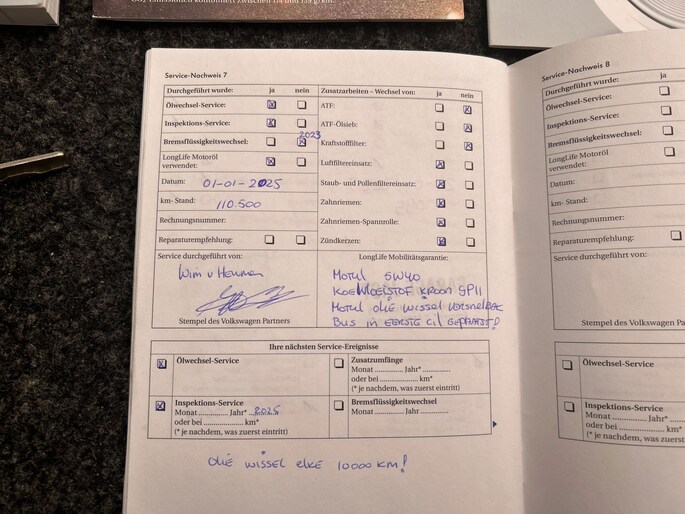 CO₂-Emissionen kombiniert zwischen 114 und 139 g/km.
Service-Nachweis 7
Durchgeführt wurde: ja nein
Ölwechsel-Service:
Inspektions-Service:
Bremsflüssigkeitswechsel: 2023
LongLife Motoröl
verwendet:
Datum: 01-01-2025
km-Stand: 110.500
Rechnungsnummer:
Reparaturempfehlung:
Service durchgeführt von:
Wim v
Stempel des Volkswagen Partners
Zusatzarbeiten – Wechsel von: ja nein
ATF:
ATF-Ölsieb:
Kraftstofffilter:
Luftfiltereinsatz:
Staub- und Pollenfiltereinsatz:
Zahnriemen:
Zahnriemen-Spannrolle:
Zündkerzen:
LongLife Mobilitätsgarantie:
Motul 5W40
KOELVLOEISTOF KROON SP11
Motul olie wissel versnelbak
Bus in EERSTE cil geplaatst!
Ihre nächsten Service-Ereignisse
Ölwechsel-Service
Zusatzumfänge
Monat ............. Jahr* .............
oder bei ................. km*
(* je nachdem, was zuerst eintritt)
Inspektions-Service
Monat ............. Jahr* ..2025
oder bei ................. km*
(* je nachdem, was zuerst eintritt)
Bremsflüssigkeitswechsel
Monat ............. Jahr .............
olie wissel elke 10000 KM!
Service-Nachweis 8
Durchgeführt wurde: ja
Ölwechsel-Service:
Inspektions-Service:
Bremsflüssigkeitswechsel:
LongLife Motoröl
verwendet:
Datum:
km- Stand:
Rechnungsnummer:
Reparaturempfehlung:
Service durchgeführt von:
Stempel des Volkswagen Partners
Ölwechsel-Service
Inspektions-Service
Monat ............. Jahr*
oder bei .................
(* je nachdem, was zuerst